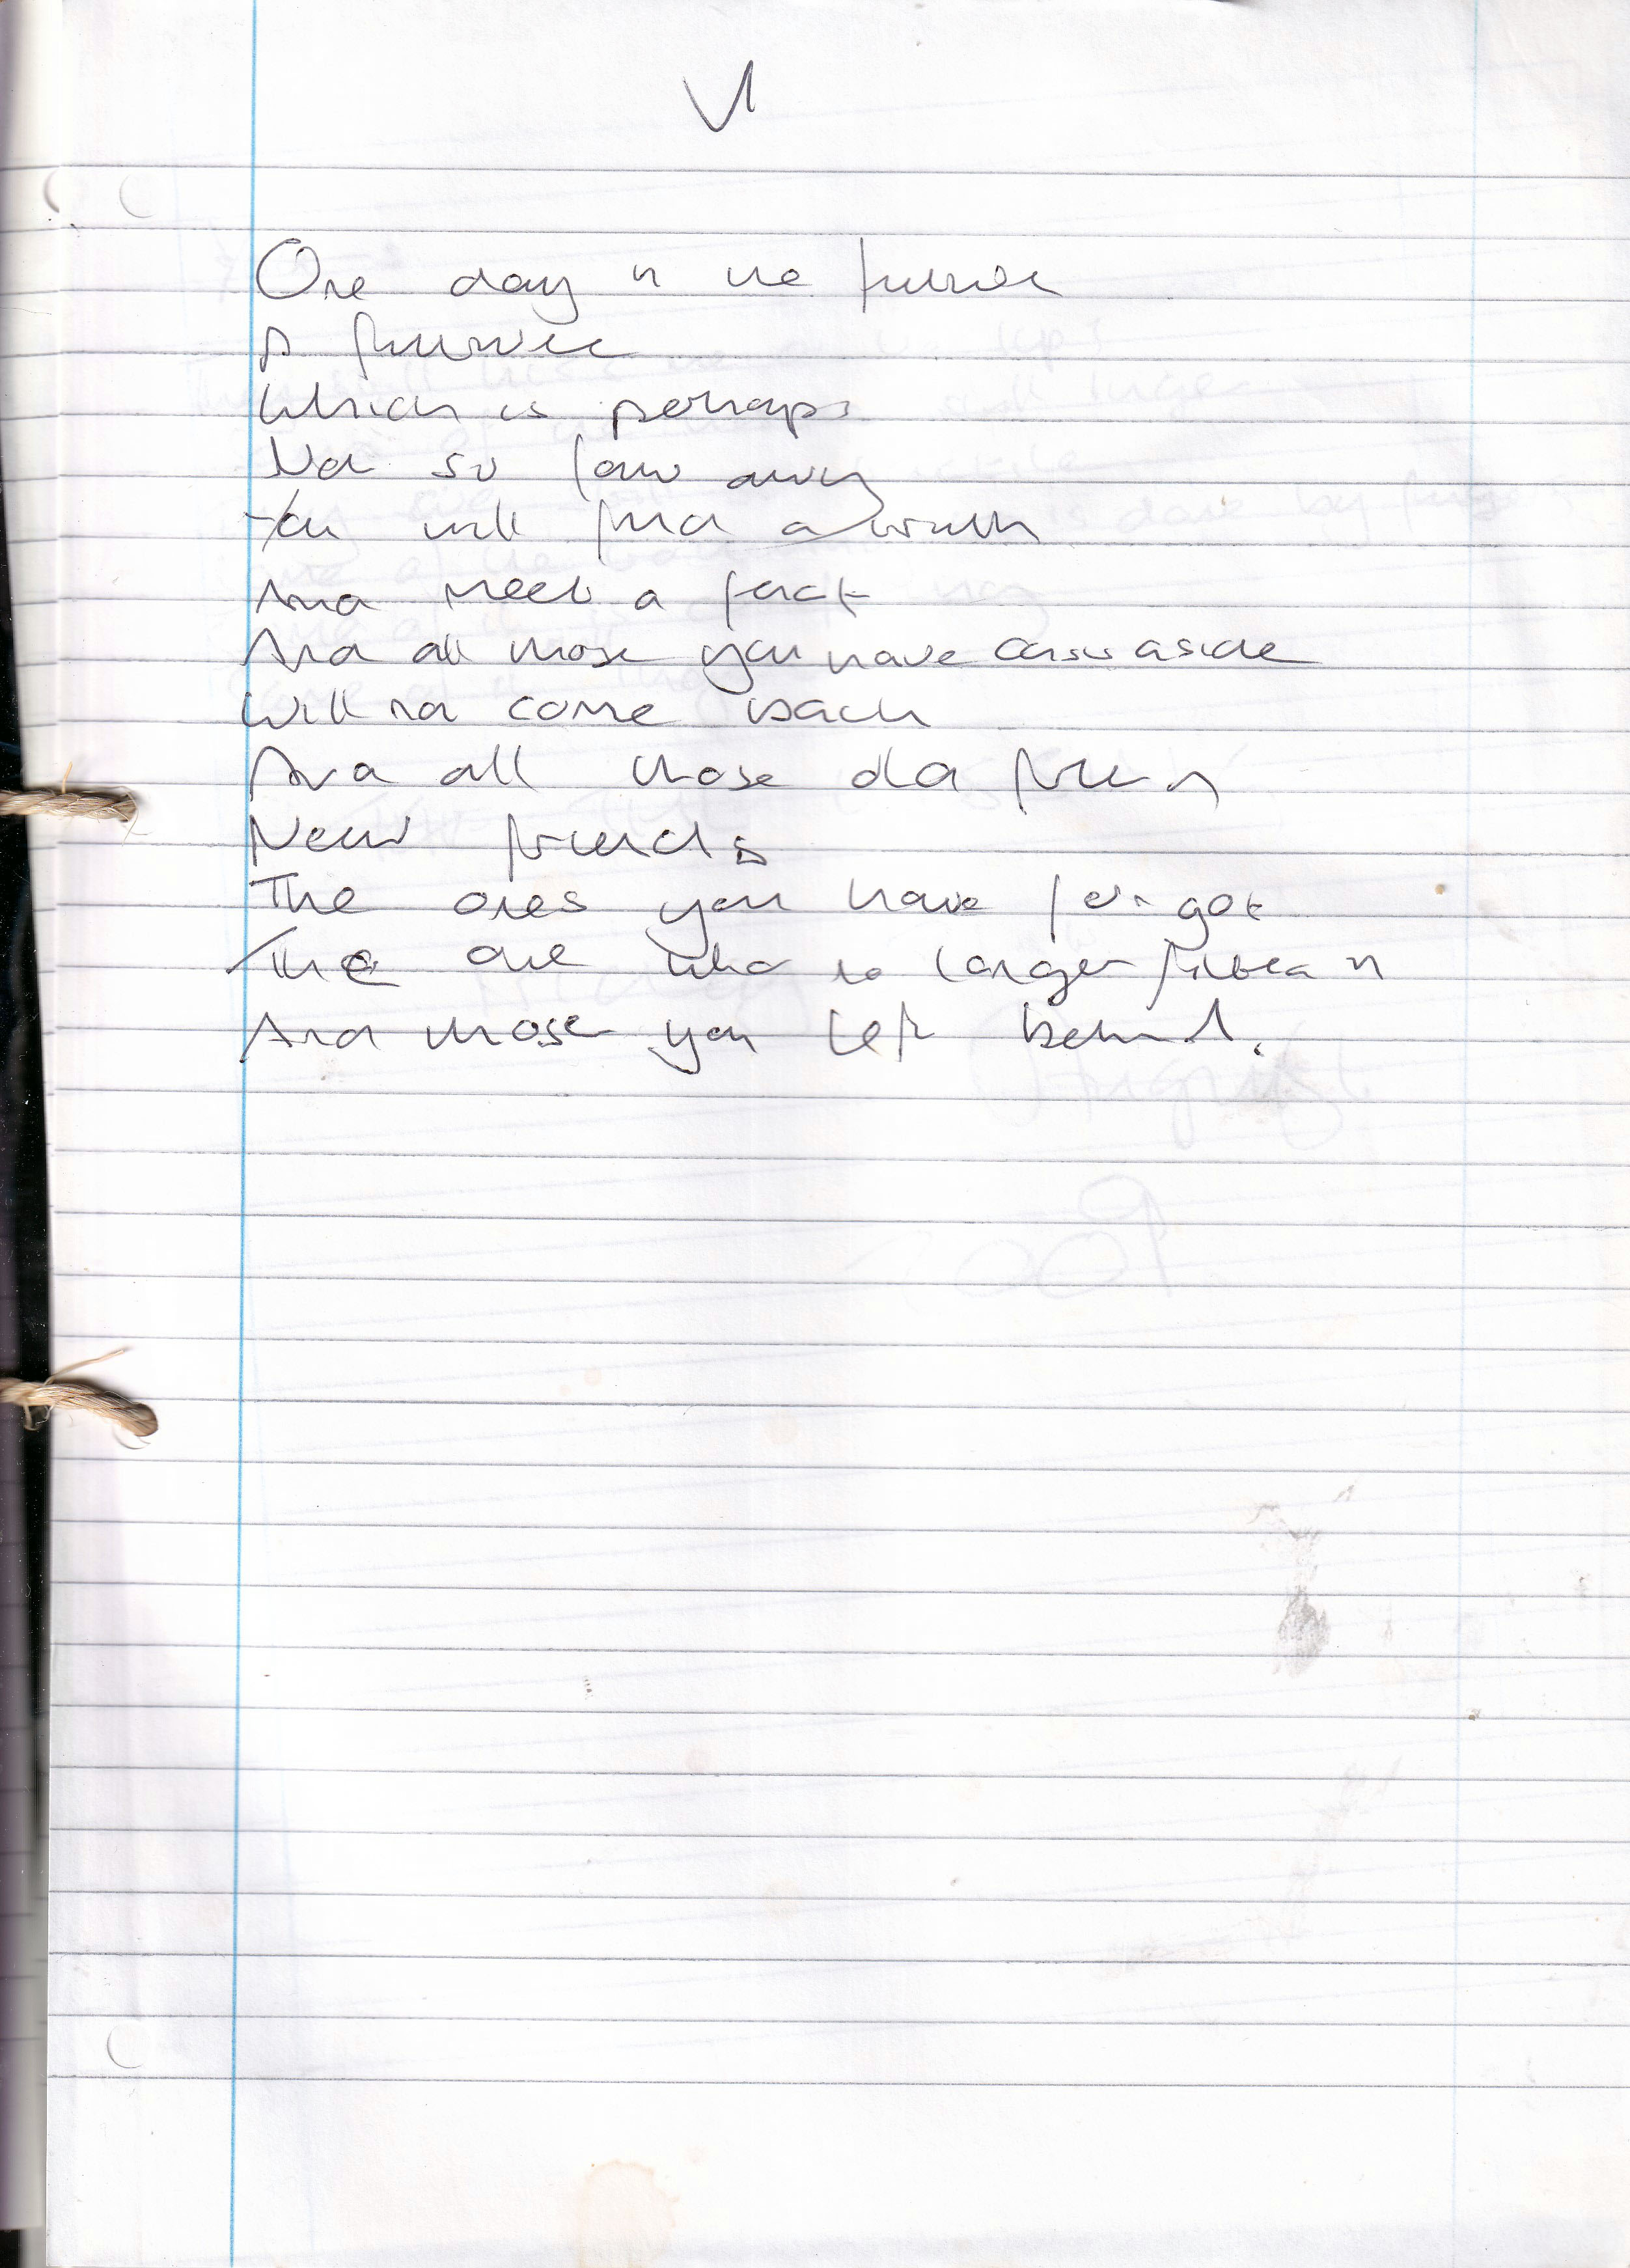 VI
One day in the future
A future
Which is perhaps
Not so far away
You will find a truth
And meet a fact
And all those you have cast aside
Will not come back
And all those old
New friends
The ones you have forgot
The one who no longer fitted in
And those you left behind.